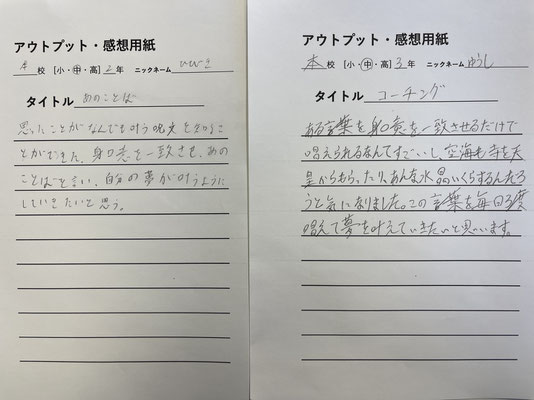 アウトプット・感想用紙
本 校 [小・中・高] 2 年 ニックネーム ひびき
タイトル あのことば
思ったことがなんでも叶う呪文を知るこ
とができた。身口意を一致させ、あの
ことばを言い、自分の夢が叶うように
していきたいと思う。
アウトプット・感想用紙
本 校 [小・中・高] 3 年 ニックネーム ゆうし
タイトル コーチング
ある言葉を身口意を一致させるだけで
唱えられるなんてすごいし、空海も寺を天
皇からもらったり、あんな水晶のいくらするんだろ
うと気になりました。この言葉を毎日3度
唱えて夢を叶えていきたいと思います。